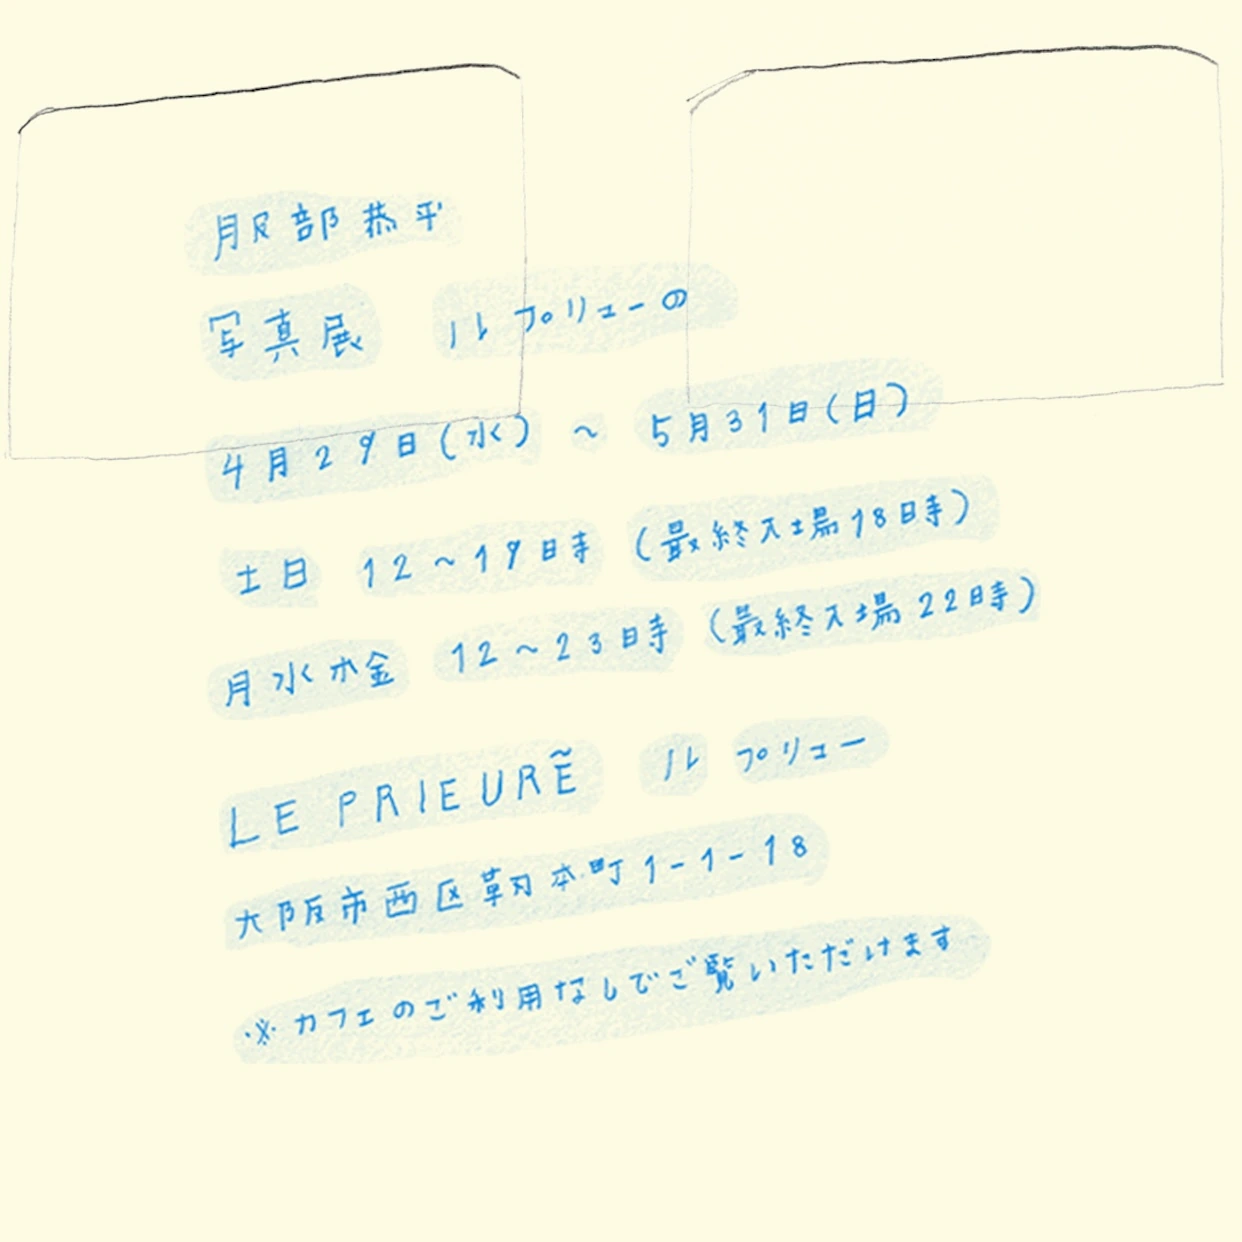 服部恭平
写真展 ルプリューの
4月29日(水) ~ 5月31日(日)
土日 12~19時 (最終入場18時)
月水木金 12~23時 (最終入場22時)
LE PRIEURẼ ル プリュー
大阪市西区靭本町1-1-18
※カフェのご利用なしでご覧いただけます